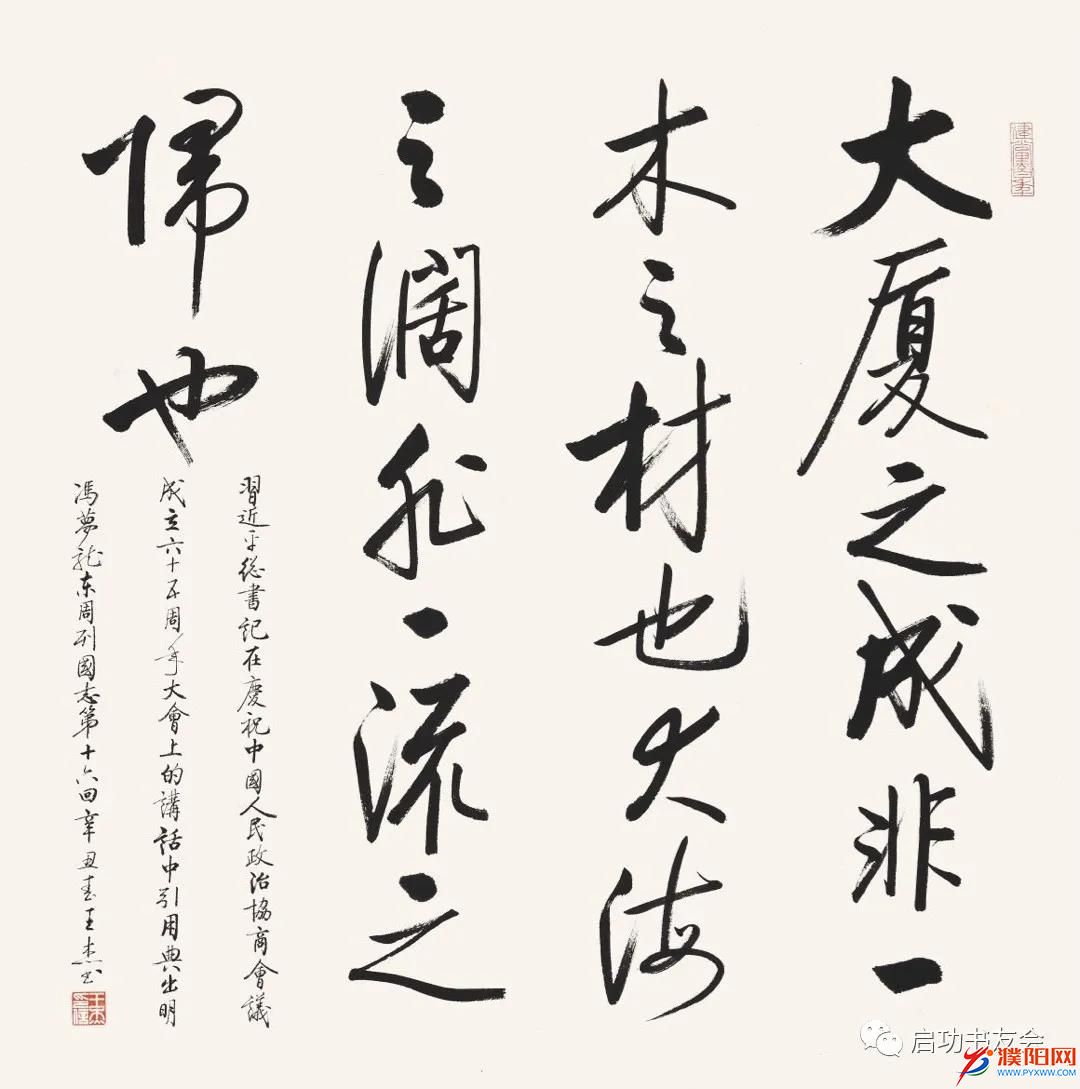 大厦之成非一
木之材也大海
之阔非一流之
归也
習近平總書記在慶祝中國人民政治協商會議
成立六十五周年大會上的講話中引用典出明
馮夢龙东周列國志第十六回辛丑春王杰书
建党百年
启功书友会
濮阳网
WWW.PYXWW.COM